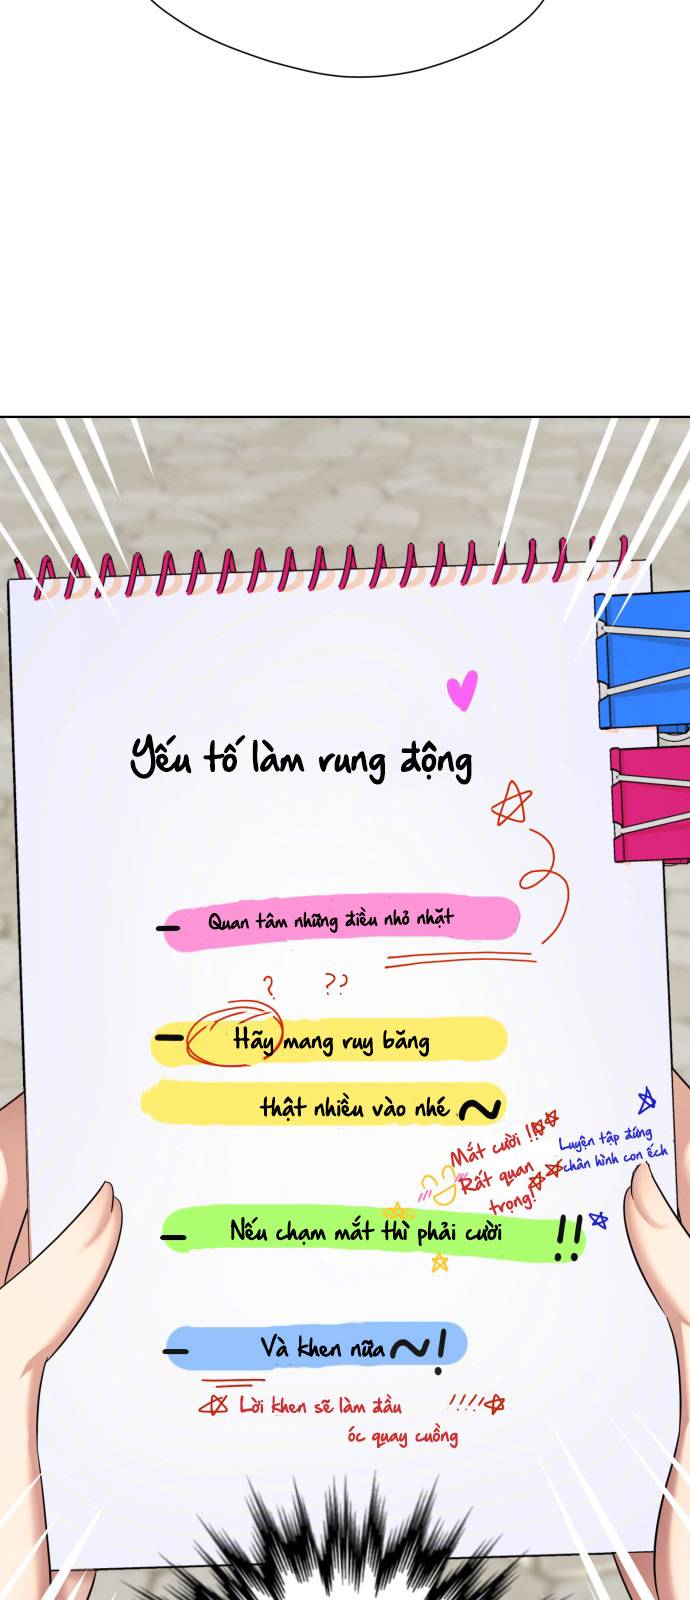 Yếu tố làm rung động
- Quan tâm những điều nhỏ nhặt
? ??
- Hãy mang ruy băng
thật nhiều vào nhé ~
Mắt cười !!
Rất quan
trọng!
Luyện tập đứng
chân hình con ếch
- Nếu chạm mắt thì phải cười !!
- Và khen nữa ~!
Lời khen sẽ làm đầu !!!!
óc quay cuồng